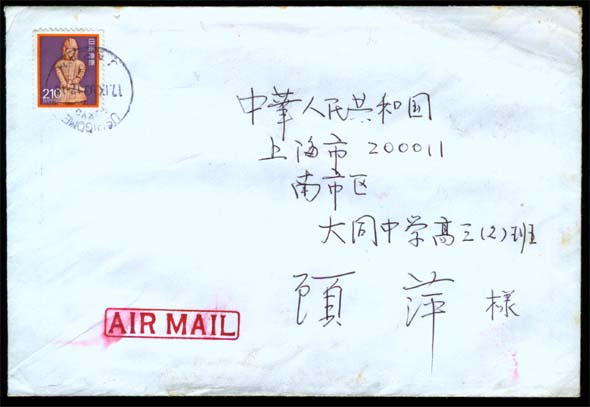 日本郵便
210
17.IX.
中華人民共和国
上海市 200011
南市区
大同中学高三(2)班
顧 萍 様
AIR MAIL